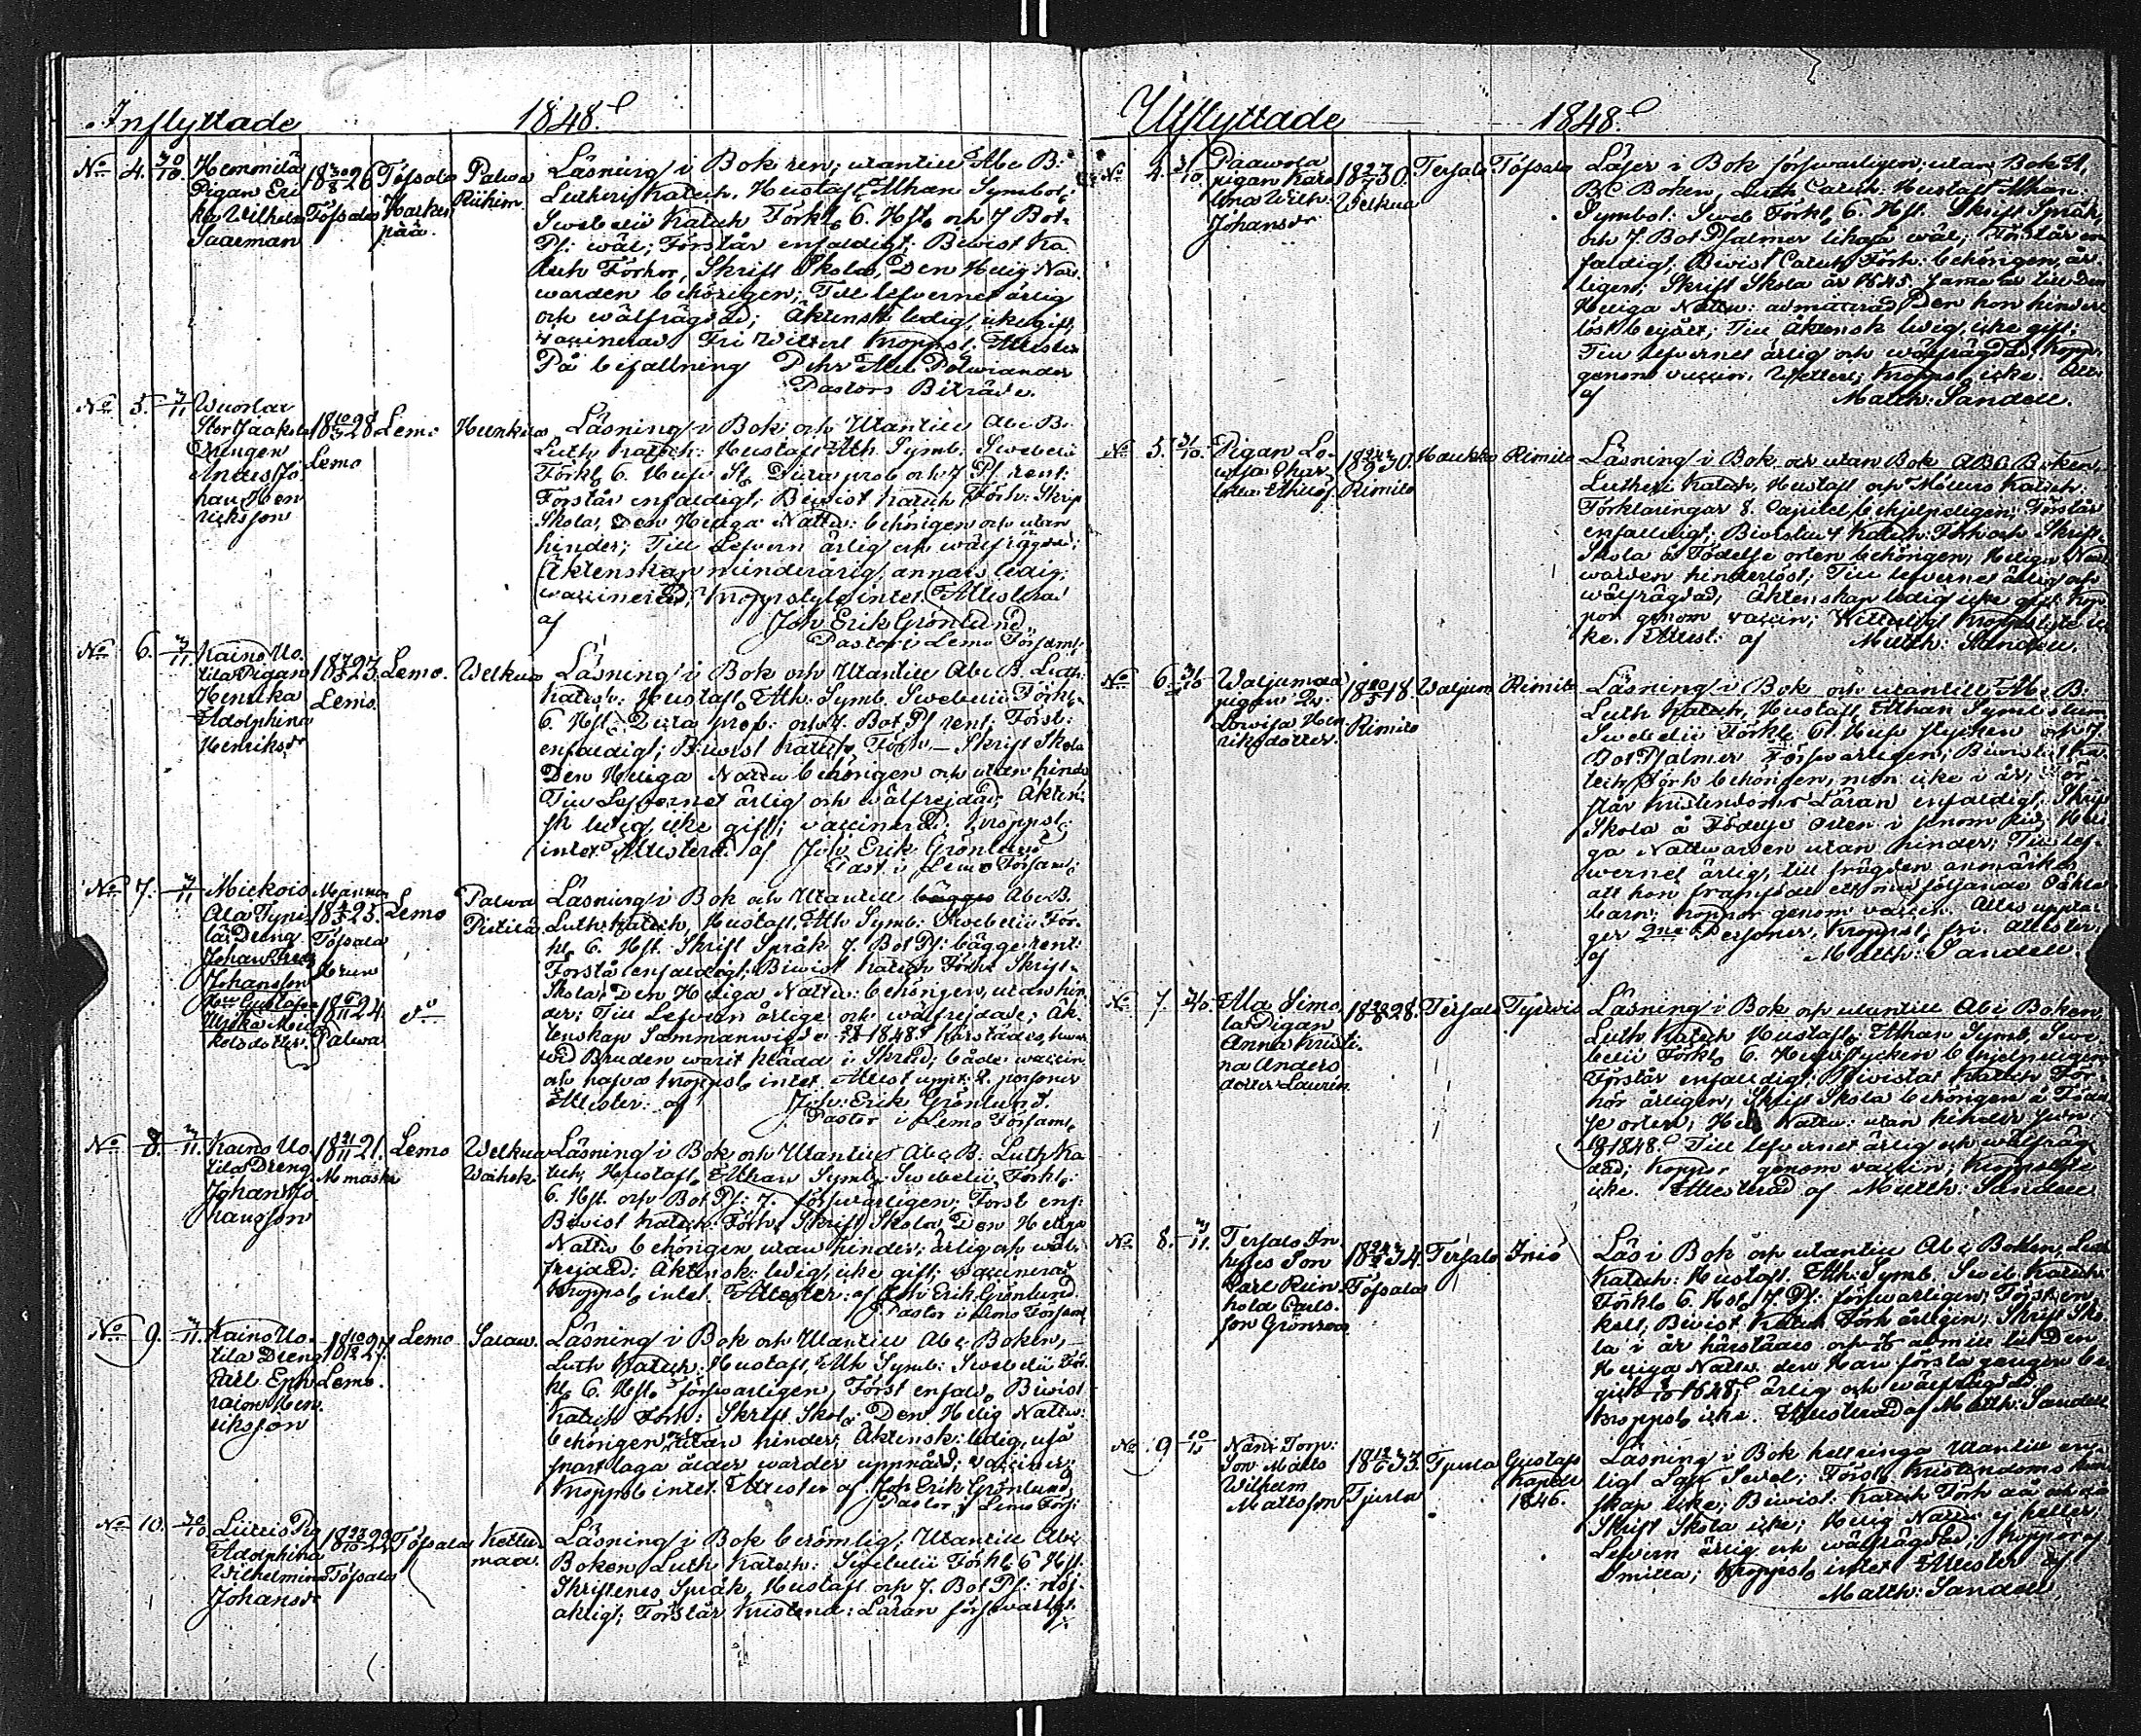 Inflyttade 1848.
No 4. 30/10 Hemmilä
Pigan Eri
ka Wilhelm
Saarman
18 30/8 26
Töfsala
Töfsala
Harkes
pää.
Palwa
Riihim.
Läsning i Bok ren; utantill Abc B:
Lutheri Katech. Hustafl. Athan Symbol.
Swebelii Katech Förkl. 6. Hfst. och 7 Bot
Ps: wäl; Förstår enfaldigt; Biwist Ka
tech Förhör, Skrift Skola, Den Helig Nat
warden behörigen; Till lefvernet ärlig
och wälfrägdad; Äktensk ledig, icke gift,
vaccinerad Fri Witterl Kroppsl. Attester
På befallning Pehr Polwiander
Pastors Biträde.
No 5. 3/11 Wuorlax
Stor Jaakola
Drengen
Anders Jo
han Hen
riksson
18 10/3 28
Lemo
Lemo
Hunkua
Läsning i Bok och Utantill Abc B.
Luth Katech: Hustafl Ath. Symb. Swebelii
Förkl. 6. Hufv St. Dura prob och 7 Ps. rent:
Förstår enfaldigt; Biwist Katech Förh: Skrift
Skola, Den Heliga Nattw: behörigen och utan
hinder; Till Lefvern ärlig och wälfrägdad;
Äktenskap minderårig, annars ledig;
vaccinerad; Kroppslyte intet. Attesterad
af Joh Erik Grönlund
Pastor i Lemo Församl.
No 6. 3/11 Kaino Uo.
tila Pigan
Henrika
Adolphina
Henriksdr
23.
Lemo
Lemo.
Welkua
Läsning i Bok och Utantill Abc B. Luth
Katech. Hustafl. Ath. Symb. Swebelii Förkl.
6. Hfst. Dura prob: och 7. Bot Ps rent; Först:
enfaldigt; Biwist Katech Förhr – Skrift Skola
Den Heliga Nattw behörigen och utan hinder
Till Lefvernet ärlig och wälfrejdad; Äkten
sk ledig, icke gift; vaccinerad; Kroppsl:
intet. Attesterd. af Joh Erik Grönlund
Past. i Lemo Församl:
No 7. 3/11 Mickois
Ala Tyni
lä Dreng
Johan
Johansson
Hu Gustafva
Ulrika Mic
kelsdotter.
Mannen
25.
Töfsala
Hrun
24.
Palwa
Lemo
do
Palwa
Pietilä
Läsning i Bok och Utantill bägge Abc B.
Luth: Katech, Hustafl, Ath Symb: Swebelii För
kl. 6. Hfst. Skrift Språk 7. Bot Ps: bägge rent:
Förstå enfaldigt; Biwist Katech Förhr Skrift-
Skola, Den Heliga Nattw: behörigen, utan hin
der; Till Lefvern ärlige och wälfrejdade; Äk
tenskap Sammanwigde 1848 härstädes, hwar
wid Bruden warit klädd i Skrud; både vaccin
och hafva Kroppsl. intet. Attest uppt: 2. personer
Attester: af Joh: Erik Grönlund.
Pastor i Lemo Församl.
No 8. 3/11. Kaino Uo
tila Dreng
Johan Jo
hansson
18 21/11 21.
Mmäski
Lemo
Welkua
Waihok.
Läsning i Bok och Utantill Abc B. Luth Ka
tech, Hustafl, Athan Symb. Swebelii, Förkl:
6. Hfst. och Bot Ps: 7. förswarligen; Först enf:
Biwist Katech. Förh. Skrift Skola, Den Heliga
Nattw behörigen utan hinder; ärlig och wäl
frejdad; Äktensk: ledig, icke gift; vaccinerad
Kroppsl. intet. Attester: af Joh Erik Grönlund
Pastor i Lemo Församl
No 9. 3/11. Kaino Uo.
tila Dreng
Carl Eph
raim Hen
riksson
18 10/12 27.
Lemo.
Lemo
Salaw.
Läsning i Bok och Utantill Abc Boken,
Luth Katech. Hustafl, Ath Symb: Swebelii För
kl. 6. Hfst. förswarligen, Först enfald. Biwist
Katech Förh: Skrift Skol: Den Helig Nattw:
behörigen utan hinder; Äktensk: ledig, så
snart laga ålder warder uppnådd; vacciner:
Kroppsl. intet. Attester af Joh Erik Grönlund
Pastor i Lemo Förs:
No 10. 30/10 Pig
Adolphina
Wilhelmina
Johansdr
22
Töfsala
Töfsala
Kettu
maa.
Läsning i Bok berömlig; Utantill Abc
Boken Luth Katech: Swebelii Förkl: 6 Hfst.
Skriftenes Språk, Hustafl och 7. Bot Ps: nöj
aktigt; Förstår Kristend: Läran förswarligt.
Utflyttade 1848.
No 4. 31/10. Paawola
pigan Karo
lina Wilh:
Johansdr
30.
Welkua
Tersalo
Töfsala
Läser i Bok förswarligen; utan Bok A,
BC Boken, Luth Catech. Hustafl Athan:
Symbol: Sweb Förkl. 6. Hfst. Skrift Språk,
och 7. Bot Psalmer likaså wäl; Förstår en
faldigt. Biwist Catech Förh: behörigen, är
ligen; Skrift Skola år 1845. samma år till Den
Heliga Nattw: admitterad, Den hon hinder
löst begått; Till Äktensk ledig, icke gift;
Till lefvernet ärlig och wälfrägdad, kopp.
genom vaccin. Witterl; Kroppsl icke. Att.
af Matth: Sandell.
No 5. 31/10. Pigan Lo-
wisa Char
lotta
30.
Rimito
Haukka
Rimito
Läsning i Bok och utan Bok ABC Boken,
Lutheri Katech, Hustafl och Möllers Katech
Förklaringar 8. Capitel behjelpligen; Förstår
enfaldigt; Biwistat Katech: Förh och Skrift-
Skola å Födelse orten behörigen; Helig Nat
warden hinderlöst; Till lefvernet ärlig och
wälfrägdad; Äktenskap ledig icke gift kop
por genom vaccin; Witterligt Kroppslyte ic
ke. Attest: af Matth: Sandell.
No 6. 31/10 Waljumaa
pigan
Lowisa Hen
riksdotter.
18.
Rimito
Waljum
Rimito
Läsning i Bok och utantill Abc B:
Luth Katech, Hustafl, Athan Symbolum
Swebelii Förkl. 6. Hufv stycken och 7.
Bot Psalmer Förswarligen; Biwistat Ka
tech Förh behörigen, men icke i år; För-
står Kristendoms Läran enfaldigt; Skrift
Skola å Födelse Orten i genom Heli
ga Nattwarden utan hinder; Till lef
wernet ärlig, till frägden anmärkes
att hon framfödt ett med följande Oäkta
barn; koppor genom vaccin. Attes uppta
ger 2ne Personer, Kroppsl. fri. Attester.
af Matth: Sandell.
No 7. Ala Simo
la Pigan
Anna Kristi
na Anders
dotter Laurén
28.
Tersalo
Tyrwis
Läsning i Bok och utantill Abc Boken,
Luth Katech Hustafl, Athan Symb, Swe
belii Förkl. 6. Hufv Stycken behjelpligen
Förstår enfaldigt; Biwistat Katech För-
hör årligen, Skrift Skola behörigen å Födel
se orten; Hel. Nattw: utan hinder
1848. Till lefvernet ärlig och wälfräg
dad; koppor genom vaccin; Kroppslyte
icke. Attesterad af Matth: Sandell
No 8. 3/11. Tersalo In
hyses Son
Carl Rein
hold Carls.
son Grönroos
34.
Töfsala
Tersalo
Iniö
Läs i Bok och utantill Abc Boken, Luth
Katech: Hustafl. Ath: Symb. Sweb Katech:
Förkl. 6. Hst. 7. Ps: förswarligen; Först en
kelt, Biwist Katech Förh årligen; Skrift Sko
la i år härstädes och admitt till Den
Heliga Nattw. den Han första gången be
gick 1848; ärlig och wälfrägdad
Kroppsl. icke. Attesterad af Matth: Sandell
No 9 10/11 Torp:
Son Matts
Wilhelm
Mattsson
33.
Tjurla
Tjurla
Gustafs
Kapell
1846.
Läsning i Bok hel ringa Utantill en
ligt Lgn Sedel; Först. Kristendoms kun
skap icke; Biwist: Katech Förh
Skrift Skola icke; Helig Nattw ej heller.
Lefvern ärlig och wälfrägdad; koppor ej
smitta; Kroppsl. intet Attester af
Matth: Sandell,